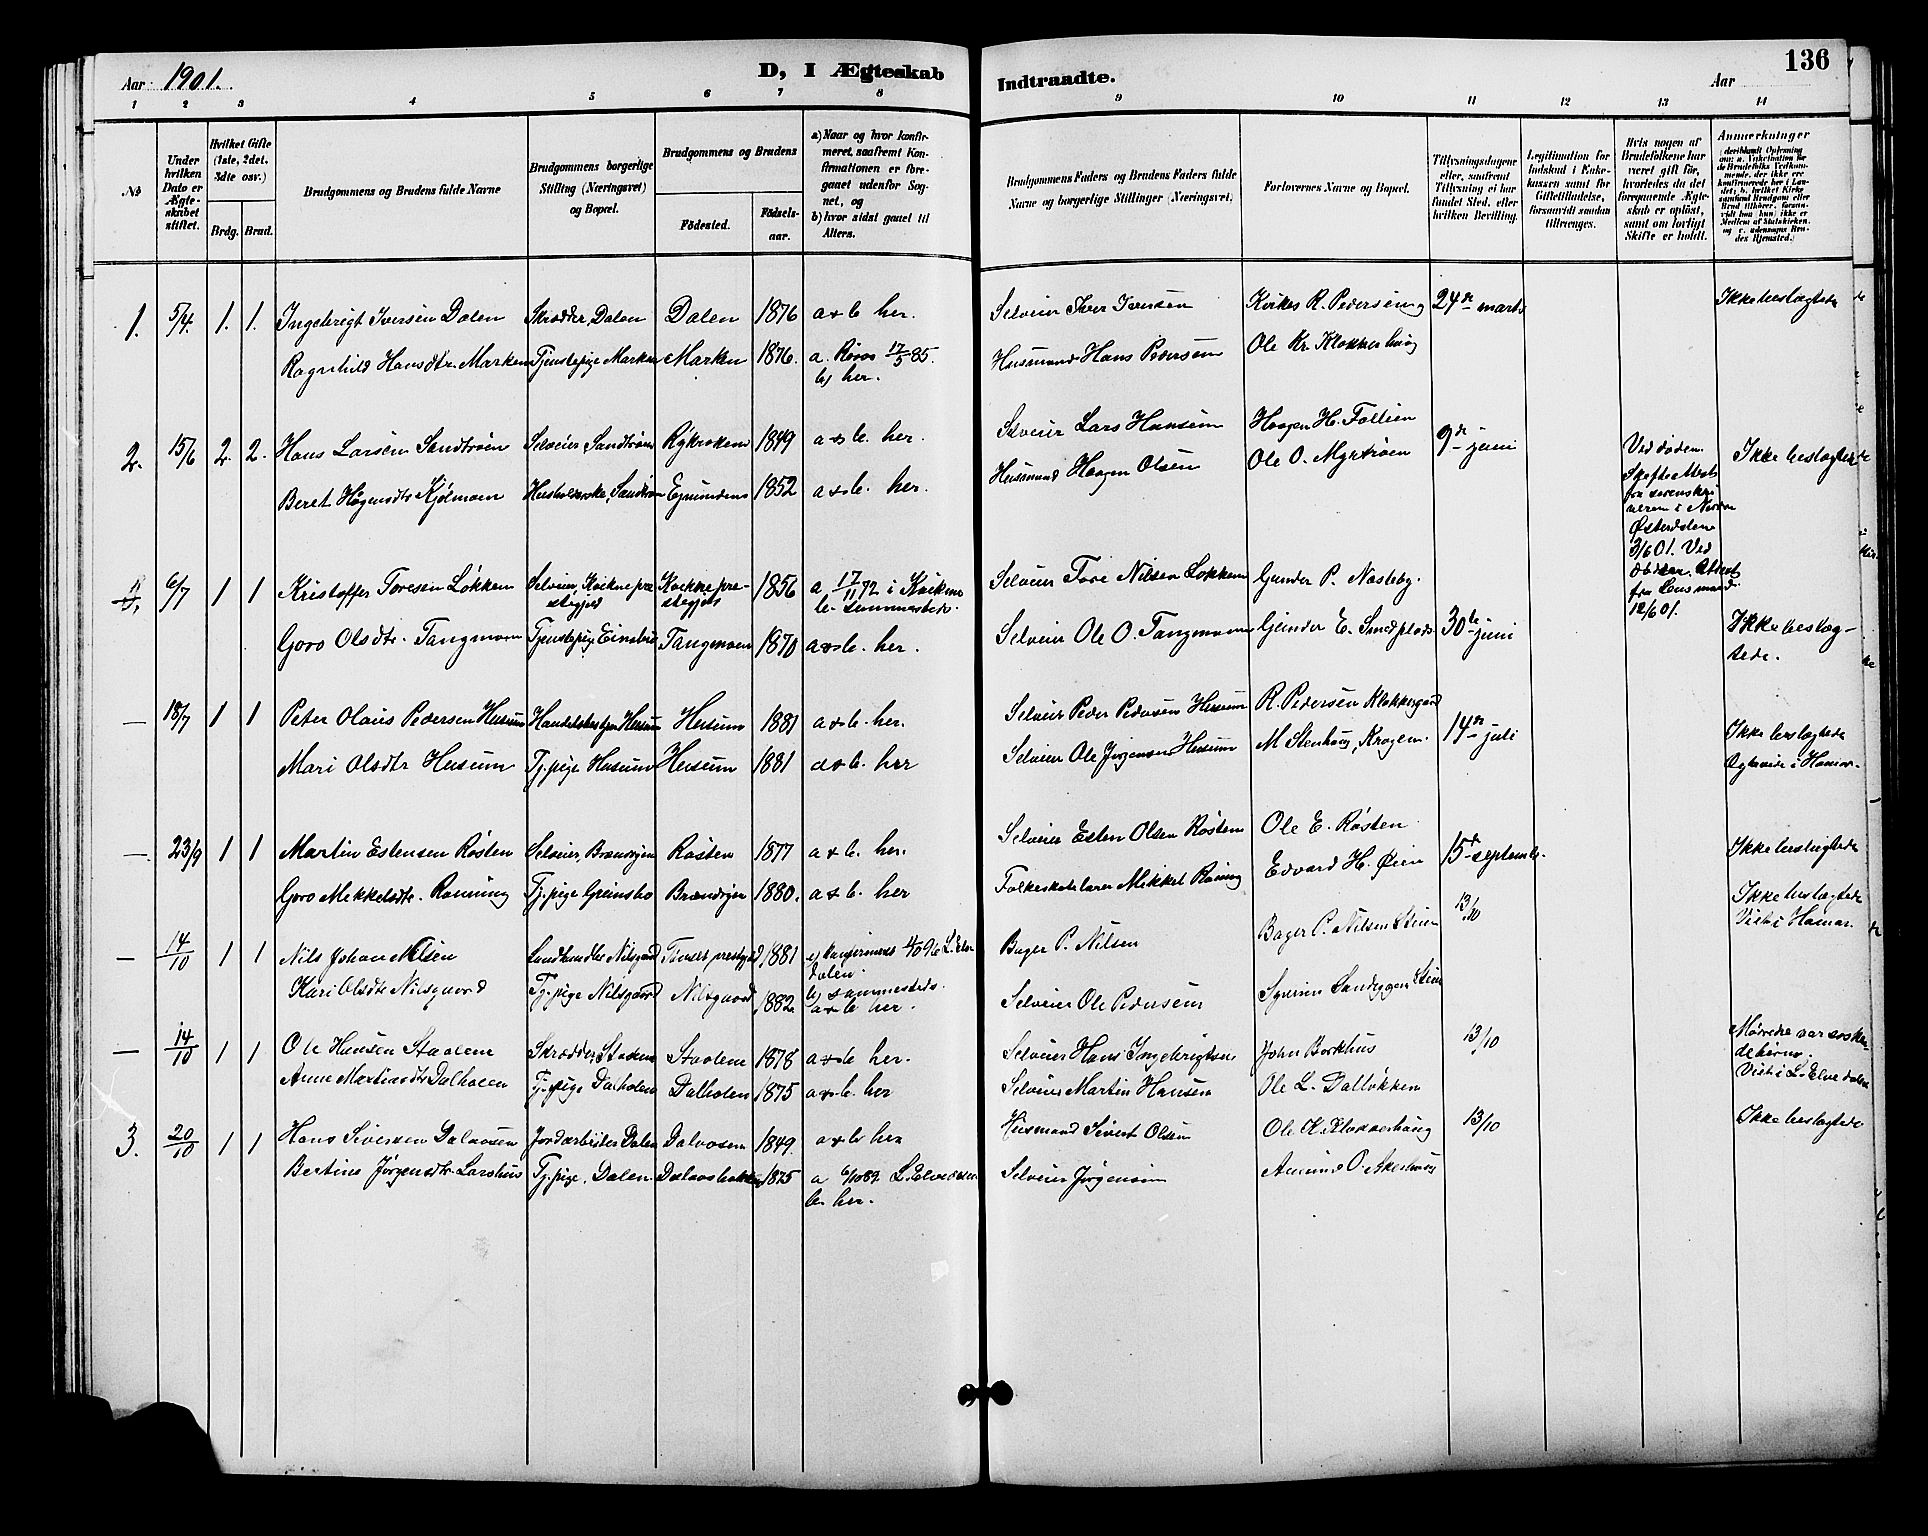 Aar 1901.
D, I Ægteskab
Indtraadte.
Aar
136
1 2 3 4 5 6 7 8 9 10 11 12 13 14
No
Under hvilken Dato er Ægteskabet stiftet.
Hvilket Gifte (1ste, 2det, 3die osv.)
Brdg. Brud.
Brudgommens og Brudens fulde Navne
Brudgommens borgerlige Stilling (Næringsvei) og Bopæl.
Brudgommens og Brudens
Fødested.
Fødselsaar.
a) Naar og hvor konfirmeret, saafremt Konfirmationen er foregaaet udenfor Sognet, og
b) hvor sidst gaaet til Alters.
Brudgommens Faders og Brudens Faders fulde Navne og borgerlige Stillinger (Næringsvei)
Forlovernes Navne og Bopæl.
Tillysningsdagene eller, saafremt Tillysning ei har fundet Sted, efter hvilken Bevilling.
Legitimation for Indskud i Enkekassen samt for Giftetilladelse, forsaavidt saadan tiltrænges.
Hvis nogen af Brudefolkene har været gift før, hvorledes da det foregaaende Ægteskab er opløst, samt om lovligt Skifte er holdt.
Anmerkninger
1. 5/4 1. 1. Ingebrigt Iversen Dalen Skrædder, Dalen Dalen 1876 a & b her. Selveier Iver Iversen Kirkes. R. Pedersen og 24de marts Ikke beslægtede
Ragnhild Hansdtr. Marken Tjenstepige Marken Marken 1876. a. Røros 17/5 85. b) her. Husmand Hans Pedersen Ole Kr. Klokkerhaug
2. 15/6 2. 2. Hans Larsen Sandtrøen Selveier Sandtrøen 1849 a & b. her. Selveier Lars Hansen Haagen H. Follien 9de juni Ved døden. Ikke beslægtede
Beret Høgensdtr Kjølmoen Sandtrøen Egnunden 1852 a & b. her. Husmand Haagen Olsen Ole O. Myrtrøen
Skifte Attest
fra sorenskriveren i Nordre
Østerdalen
3/6 01. Ved
døden. Attest
fra Lensmand
12/6 01.
6/7 1 1 Kristoffer Toresen Løkken Selveier, Kvikne prestegjeld Kvikne prestegjeld 1856 a. 17/11 72 i Kvikne b. sammesteds. Selveier Tore Nilsen Løkken Gunder P. Næsteby.
Goro Olsdtr. Tangmoen Tjenstepige Tangmoen 1870 a & b. her. Selveier Ole O. Tangmoen Gunder E. Smedplads 30te juni Ikke beslægtede.
— 18/7 1 1 Peter Olaus Pedersen Husum Husum Husum 1881 a & b. her. Selveier Peder Pedersen Husum R. Pedersen Klokkergaard
Mari Olsdtr Husum Tj.pige Husum Husum 1881 a & b. her Selveier Ole Jørgensen Husum M Stenhaug, Krogen. 14de juli Ikke beslægtede
Ogsaa viede i Hamar.
— 23/9 1 1 Martin Estensen Røsten Selveier, Brændvgen Røsten 1877 a & b. her. Selveier Esten Olsen Røsten Ole E. Røsten. 15de septemb. Ikke beslægtede
Goro Mekkelsdtr. Rønning Tj.pige Grimsbo Brændvgen 1880. a & b. her Folkeskolelærer Mikkel Rønning Edvard H. Øien
— 14/10 1 1 Nils Johan Nilsen Nilsgaard Tønset prestegjeld 1881 a) konfirmeret 4/10 96 L. Elvedalen. b) sammesteds. Bager P. Nilsen Bager P. Nilsen Steien 13/10 Ikke beslægtede
Viet i Hamar.
Kari Olsdtr Nilsgaard Tj.pige Nilsgaard Nilsgaard 1882. a & b her. Selveier Ole Pedersen Steien
— 14/10 1 1 Ole Hansen Staalen Skrædder, Staalen Staalen 1878 a & b her. Selveier Hans Ingebrigtsen John Borkhus 13/10 Mødrene var søskendebørn.
Viet i L. Elvedalen
Anne Martinsdtr Dalholen Tj.pige Dalholen Dalholen 1875 a & b. her Selveier Martin Hansen Ole L. Dalløkken
3. 20/10 1 1 Hans Sivertsen Dalvosen Jordarbeider Dalen Dalvosen 1849. a & b her Husmand Sivert Olsen Ole K. Klokkerhaug 13/10 Ikke beslægtede
Bertine Jørgensdtr Larshus Tj.pige, Dalen Dalvosbakken 1875 a 6/10 89 L. Elvedalen b. her. Selveier Jørgensen Amund O. Akerhaug